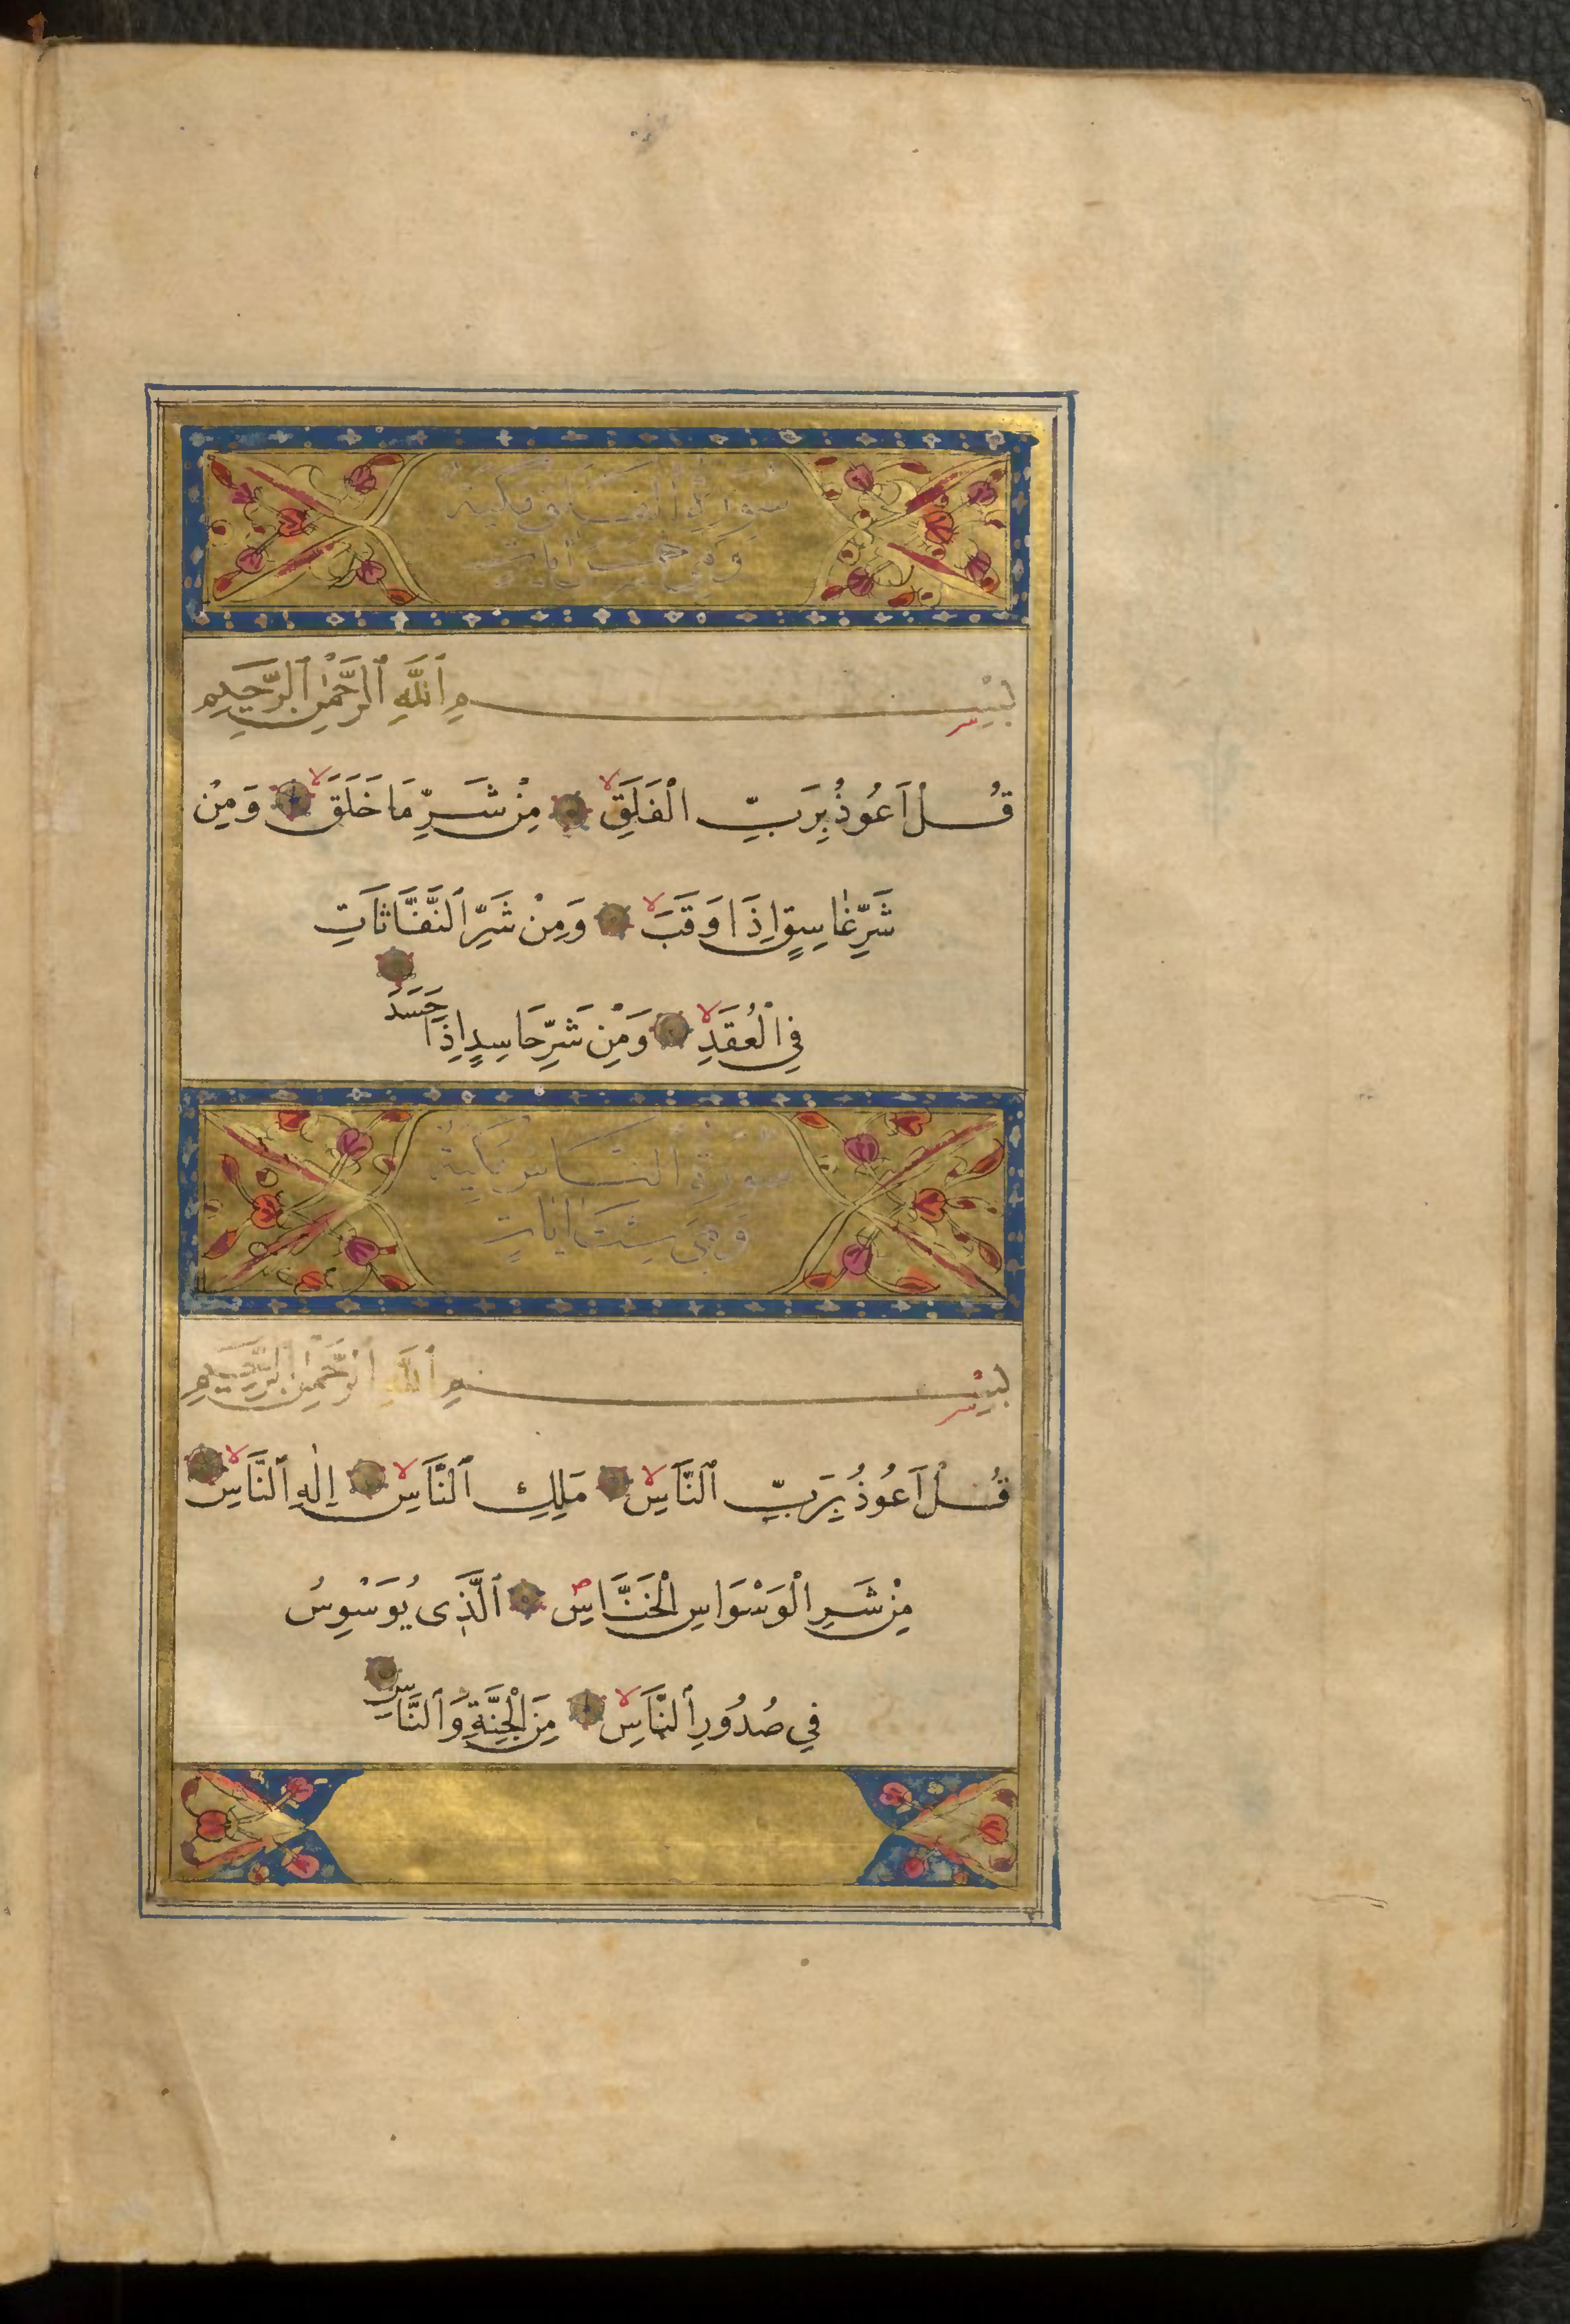 سورة الفلق مكية
وهي خمس ايات
بِسْمِ ٱللَّهِ ٱلرَّحْمٰنِ ٱلرَّحِيمِ
قُلْ اَعُوذُ بِرَبِّ الْفَلَقِ لا مِنْ شَرِّ مَا خَلَقَ لا وَمِنْ
شَرِّ غَاسِقٍ اِذَا وَقَبَ لا وَمِنْ شَرِّ ٱلنَّفَّاثَاتِ
فِي الْعُقَدِ لا وَمِنْ شَرِّ حَاسِدٍ اِذَا حَسَدَ
سورة الناس مكية
وهي ست ايات
بِسْمِ ٱللَّهِ ٱلرَّحْمٰنِ ٱلرَّحِيمِ
قُلْ اَعُوذُ بِرَبِّ ٱلنَّاسِ لا مَلِكِ ٱلنَّاسِ لا اِلٰهِ ٱلنَّاسِ لا
مِنْ شَرِ الْوَسْوَاسِ الْخَنَّاسِ ص ٱلَّذِى يُوَسْوِسُ
فِي صُدُورِ ٱلنَّاسِ لا مِنَ الْجِنَّةِ وَٱلنَّاسِ